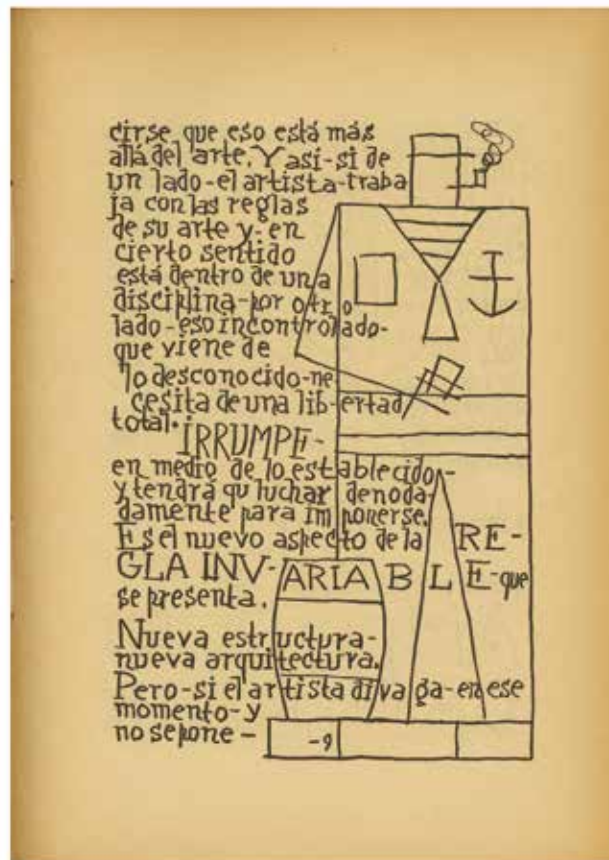 cirse que eso está más
allá del arte. Y asi-si de
un lado-el artista-traba
ja con las reglas
de su arte y-en
cierto sentido
está dentro de una
disciplina-por otro
lado-eso incontrolado-
que viene de
lo desconocido-ne
cesita de una lib-ertad
total.
IRRUMPE-
en medio de lo establecido-
y tendrá qu luchar denoda-
damente para imponerse.
Es el nuevo aspecto de la RE-
GLA INV-ARIABLE-que
se presenta.
Nueva estructura-
nueva arquitectura.
Pero-si el artista divaga-en ese
momento-y
no se pone-
-9